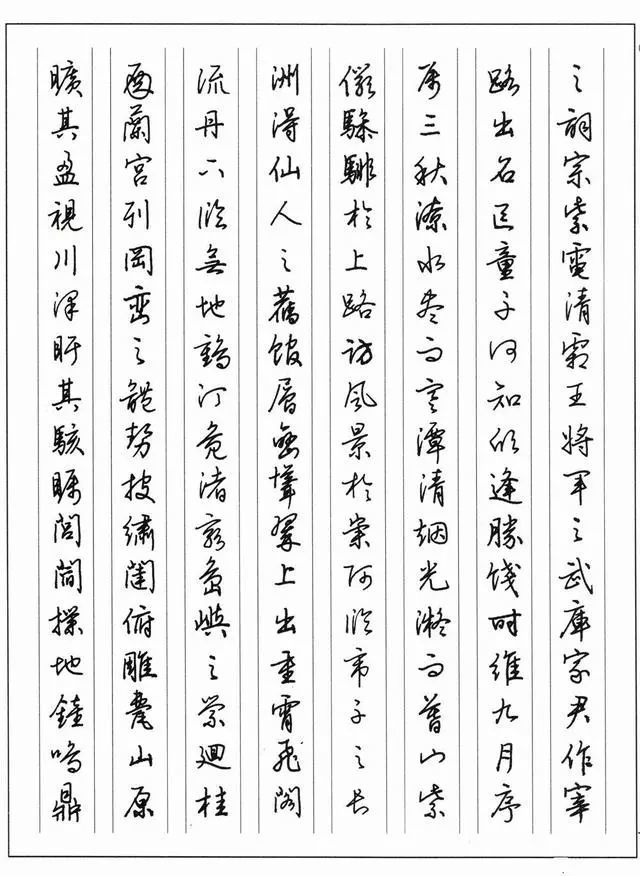 之詞宗紫電清霜王將軍之武庫家君作宰
路出名區童子何知躬逢勝餞时維九月序
属三秋潦水盡而寒潭清烟光凝而暮山紫
儼驂騑於上路訪風景於崇阿臨帝子之長
洲得仙人之舊館層巒聳翠上出重霄飛閣
流丹下臨無地鶴汀鳧渚窮島嶼之縈迴桂
殿蘭宮列岡巒之體勢披繡闥俯雕甍山原
曠其盈視川澤盱其駭矚閭閻撲地鐘鳴鼎